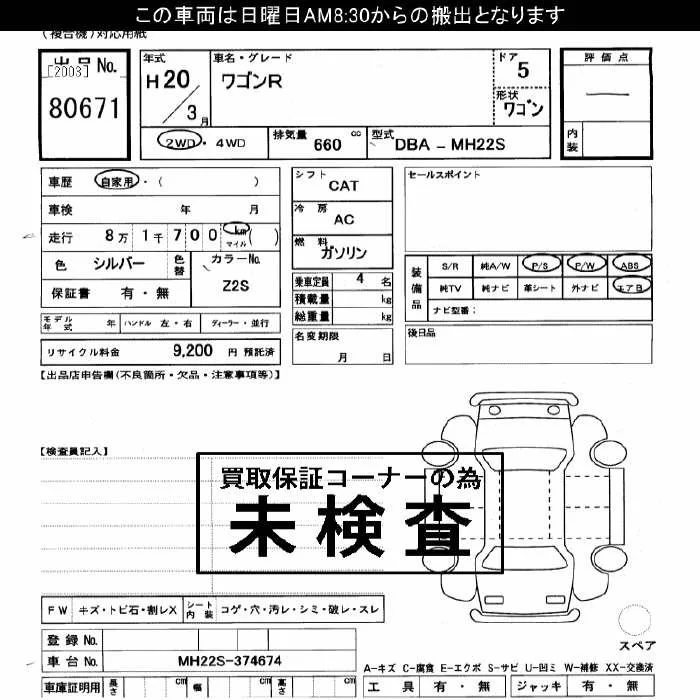 この車両は日曜日AM8:30からの搬出となります
(複合機)対応用紙
出品No. [2003] 80671
年式 H20 / 3月
車名・グレード ワゴンR
ドア 5
形状 ワゴン
評価点 —
内装
2WD・4WD 排気量 660 cc 型式 DBA - MH22S
車歴 自家用・( )
車検 年 月
走行 8万 1千 7 0 0 km マイル ( )
色 シルバー 色替 カラーNo. Z2S
保証書 有・無
モデル年式 年 ハンドル 左・右 ディーラー・並行
リサイクル料金 9,200 円 預託済
シフト CAT
冷房 AC
燃料 ガソリン
乗車定員 4 名
積載量 kg
総重量 kg
名変期限 月 日
セールスポイント
装備品 S/R 純A/W P/S P/W ABS
純TV 純ナビ 革シート 外ナビ エアB
ナビ型番:
後日品
【出品店申告欄(不良箇所・欠品・注意事項等)】
【検査員記入】
買取保証コーナーの為
未検査
FW キズ・トビ石・割レX シート内装 コゲ・穴・汚レ・シミ・破レ・スレ
登録No.
車台No. MH22S-374674
車庫証明用 長さ cm 幅 cm 高さ cm
スペア
A-キズ C-腐食 E-エクボ S-サビ U-凹ミ W-補修 XX-交換済
工具 有・無 ジャッキ 有・無